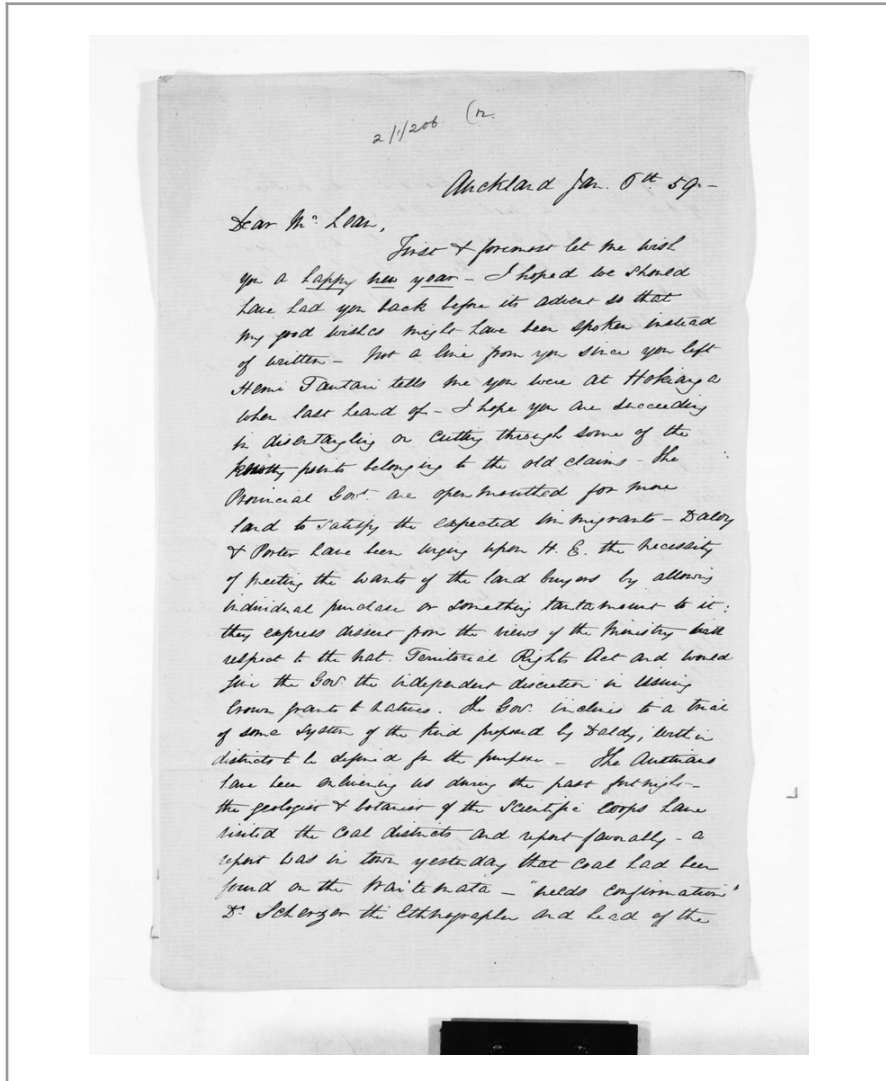 2/1/206 (12.
Auckland Jan. 6th 59 -
Dear Mc. Lean,
First & foremost let me wish
you a happy new year - I hoped we should
have had you back before its advent so that
my good wishes might have been spoken instead
of written - Not a line from you since you left
Hemi Tautari tells me you were at Hokianga
when last heard of - I hope you are succeeding
in disentangling or cutting through some of the
knotty points belonging to the old claims - The
Provincial Govt. are open mouthed for more
land to satisfy the expected immigrants - Daldy
& Porter have been urging upon H. E. the necessity
of meeting the wants of the land buyers by allowing
individual purchase or something tantamount to it:
they express dissent from the views of the Ministry with
respect to the Nat. Territorial Rights Act and would
give the Gov. the independent discretion in issuing
Crown grants to natives. The Gov. inclines to a trial
of some system of the kind proposed by Daldy, within
districts to be defined for the purpose - The Austrians
have been enlivening us during the past fortnight -
the geologist & botanist of the Scientific Corps have
visited the coal districts and report favorably - a
report was in town yesterday that coal had been
found on the Waitemata - "needs confirmation"
Dr. Scherzer the Ethnographer and head of the